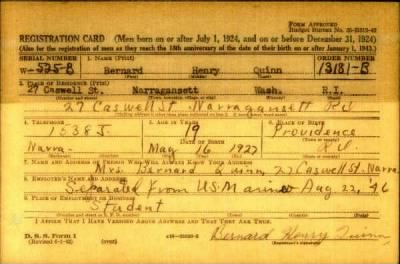 FORM APPROVED
REGISTRATION CARD (Men born on or after July 1, 1924, and on or before December 31, 1924)
(Also for the registration of men as they reach the 18th anniversary of the date of their birth on or after January 1, 1943.)
SERIAL NUMBER 1. NAME (Print) ORDER NUMBER
W-535-B Bernard Henry Quinn 13181-B
2. PLACE OF RESIDENCE (Print)
27 Caswell St. Narragansett Wash. R.I.
27 Caswell St. Narragansett R.I.
4. TELEPHONE 5. AGE IN YEARS 6. PLACE OF BIRTH
1538J 19 Providence
Narra- May 16 1927 R.I.
7. NAME AND ADDRESS OF PERSON WHO WILL ALWAYS KNOW YOUR ADDRESS
Mrs. Bernard Quinn, 27 Caswell St. Narra
8. EMPLOYER'S NAME AND ADDRESS
Separated From U.S. Marines Aug 22, 46
9. PLACE OF EMPLOYMENT OR BUSINESS
Student
I AFFIRM THAT I HAVE VERIFIED ABOVE ANSWERS AND THAT THEY ARE TRUE.
D. S. S. Form 1
(Revised 6-1-42)
Bernard Henry Quinn